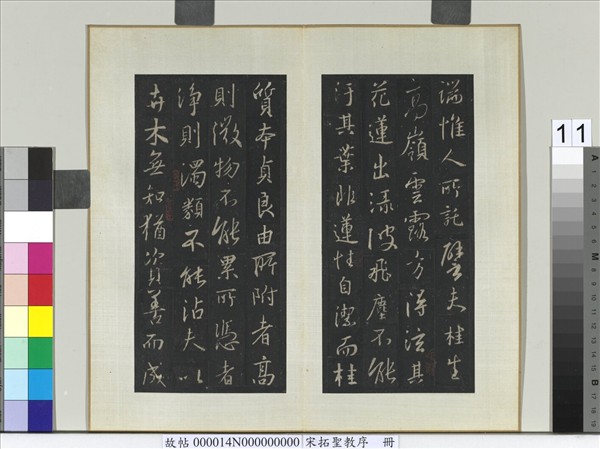 端惟人所託譬夫桂生
高嶺雲露方得泫其
花蓮出淥波飛塵不能
汙其葉非蓮性自潔而桂
質本貞良由所附者高
則微物不能累所憑者
淨則濁類不能沾夫以
卉木無知猶資善而成
11
故帖 000014N000000000 宋拓聖教序 冊
A 1 2 3 4 5 6 M 8 9 10 11 12 13 14 15 B 17 18 19